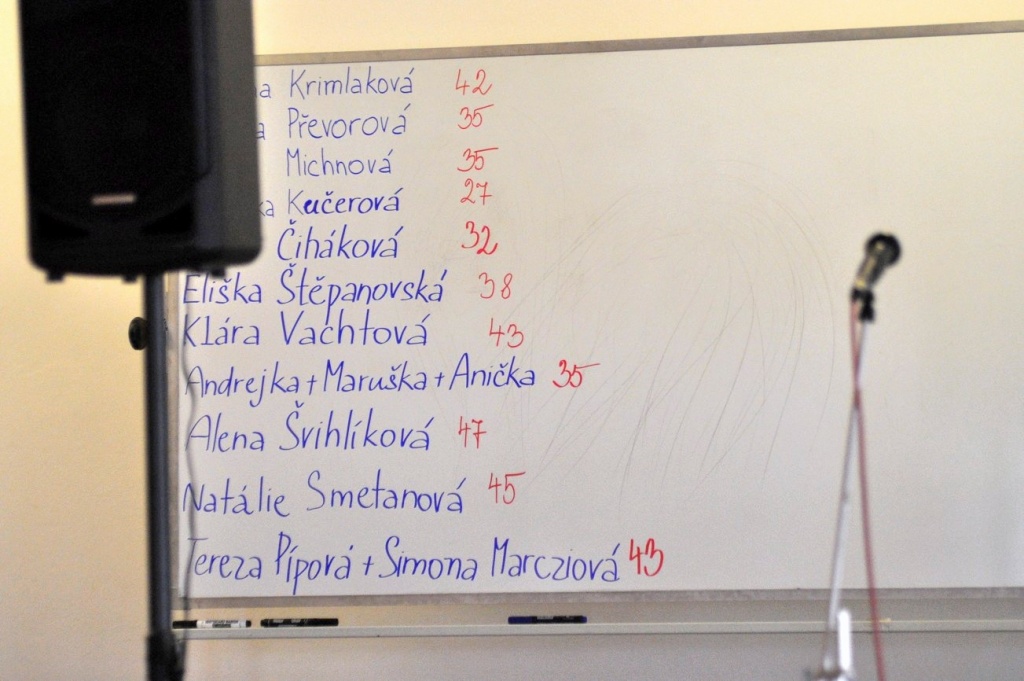 Krimlaková 42
Převorová 35
Michnová 35
Kučerová 27
Čiháková 32
Eliška Štěpanovská 38
Klára Vachtová 43
Andrejka + Maruška + Anička 35
Alena Švihlíková 47
Natálie Smetanová 45
Tereza Pípová + Simona Marcziová 43